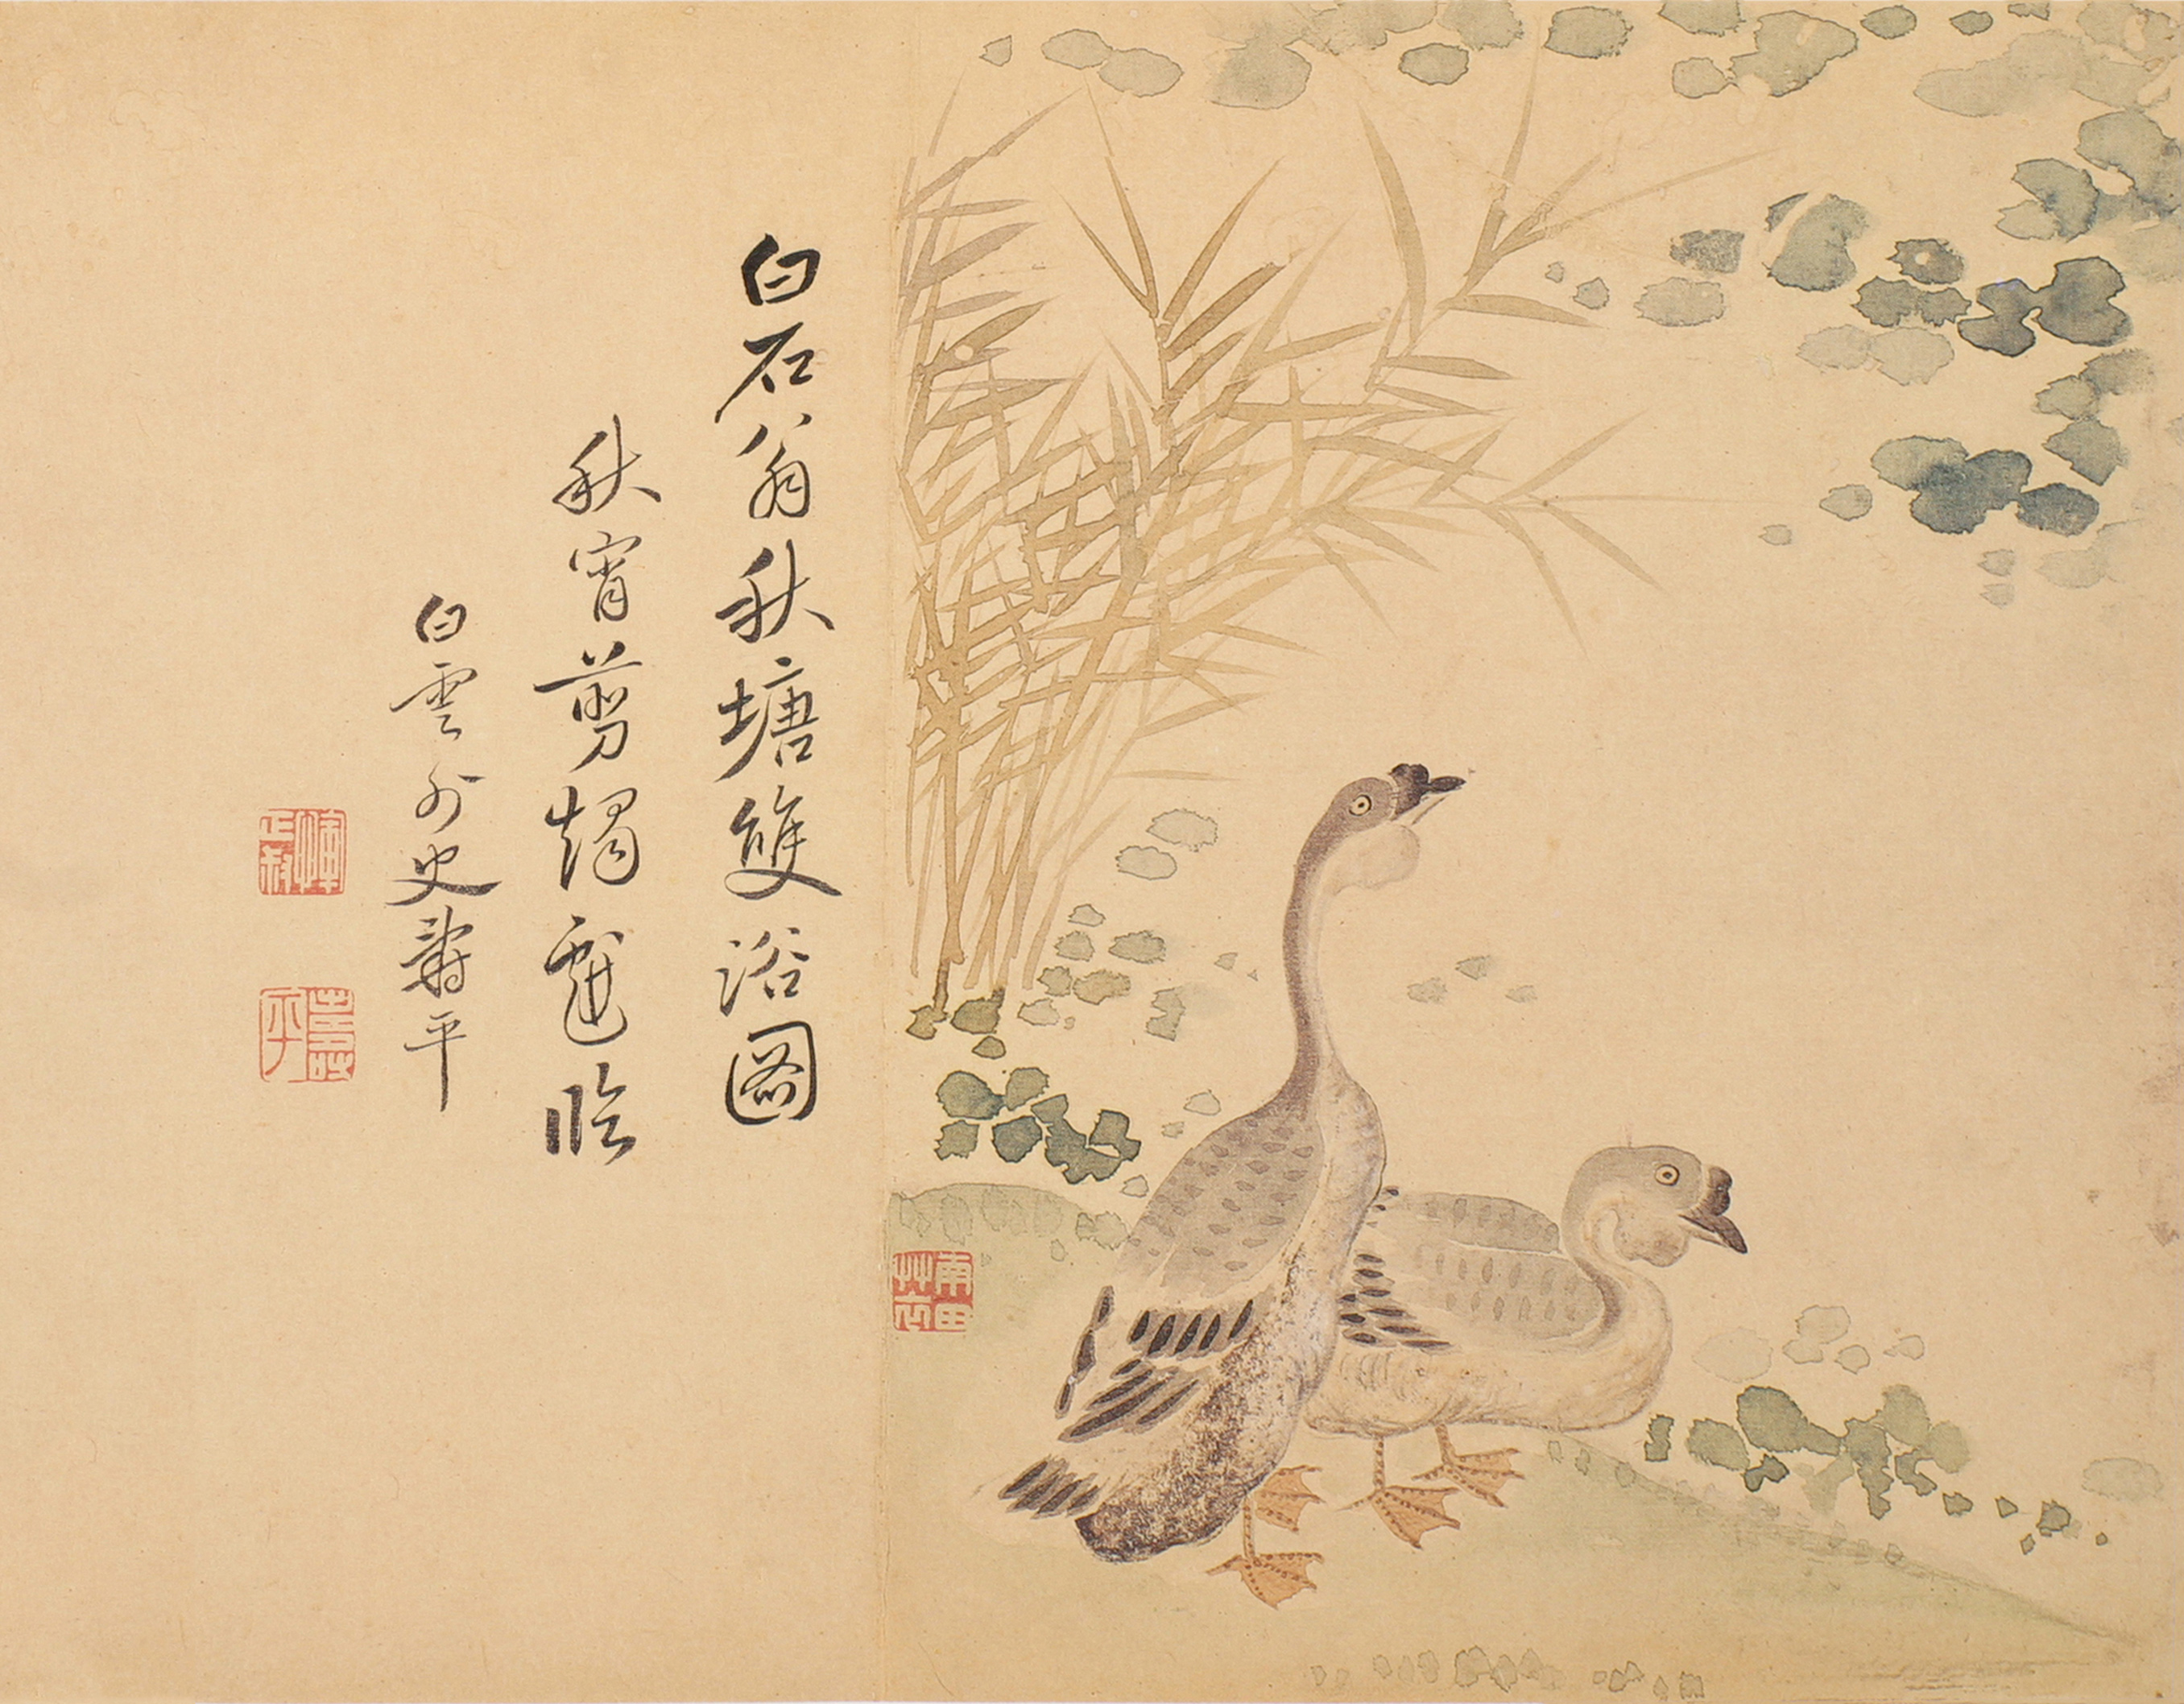 白石翁秋塘雙浴圖
秋宵剪燭戲臨
白雲外史壽平
惲正叔
壽平
南田草衣